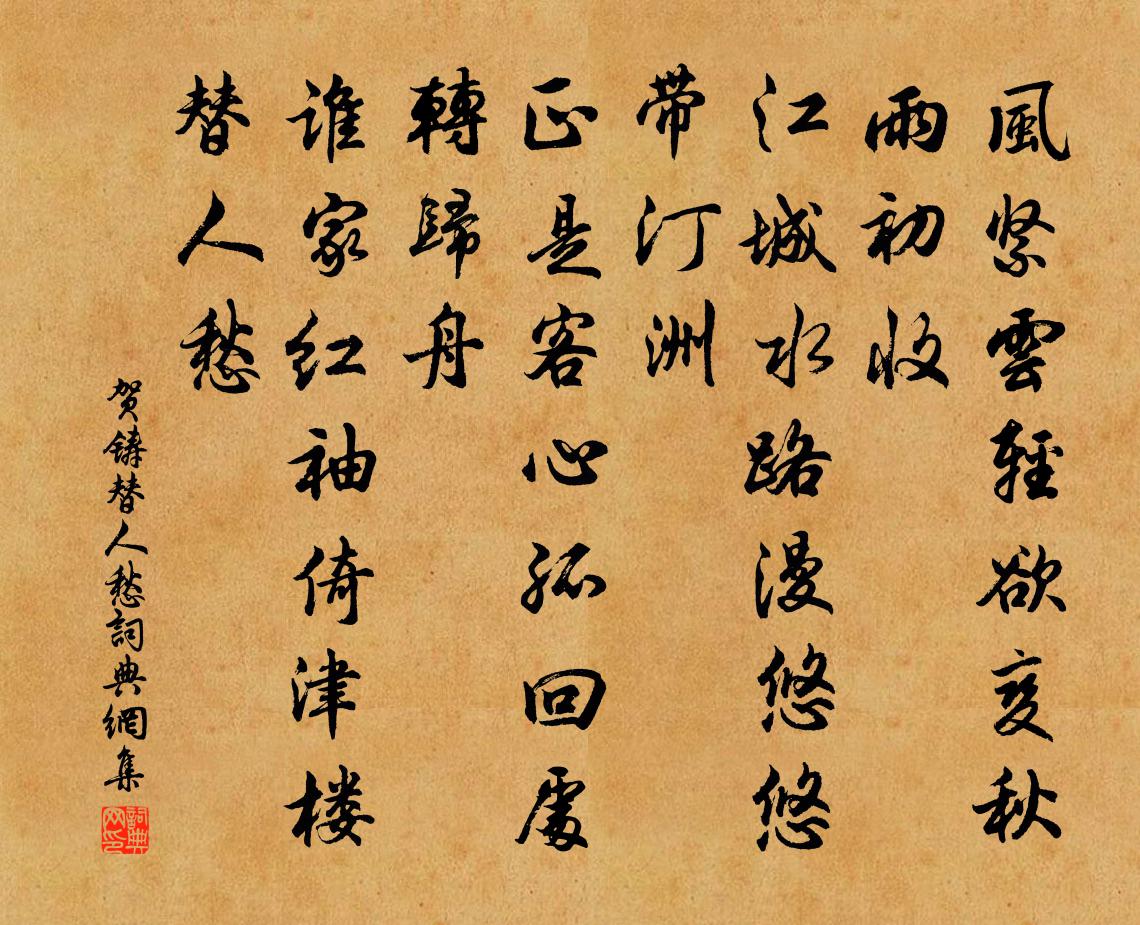 風緊雲輕欲变秋
雨初收
江城水路漫悠悠
帶汀洲
正是客心孤回處
轉歸舟
誰家红袖倚津楼
替人愁
贺鑄替人愁詞典網集
詞典网印